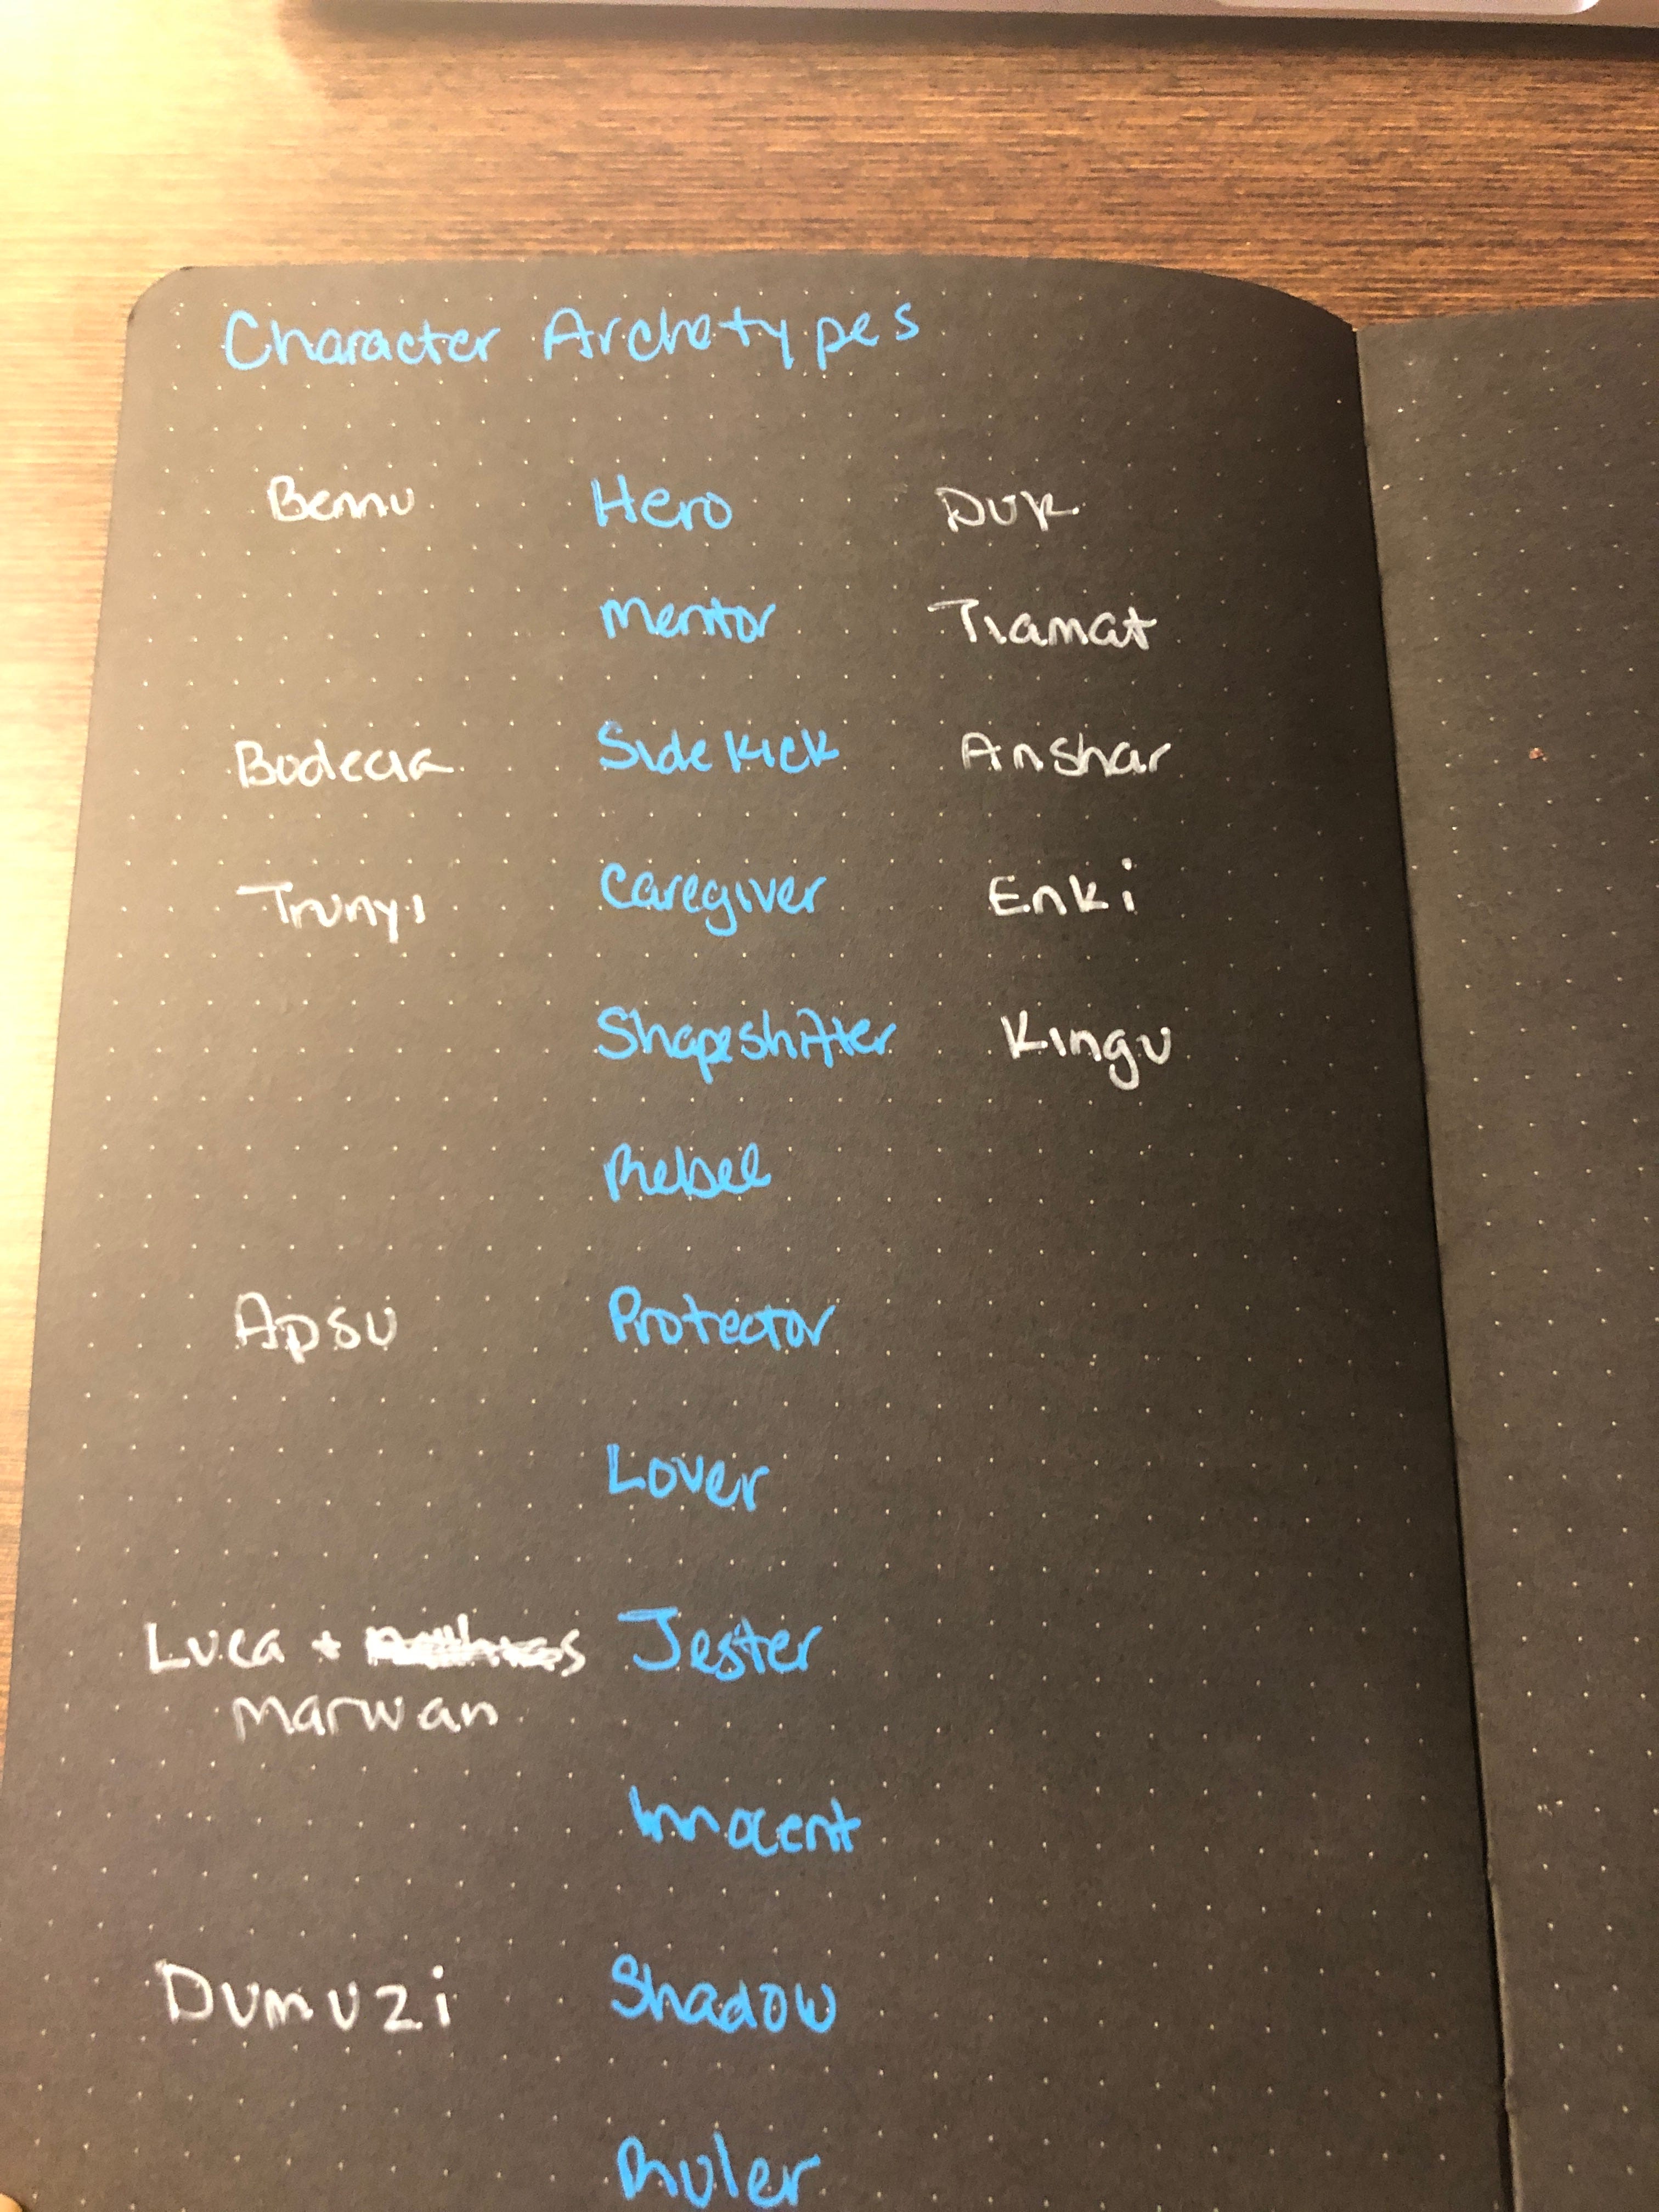 Character Archetypes
Bennu Hero Duk
Mentor Tiamat
Bodecia Sidekick Anshar
Trunyi Caregiver Enki
Shapeshifter Kingu
Rebel
Apsu Protector
Lover
Luca + Jester
Marwan
Innocent
Dumuzi Shadow
Ruler